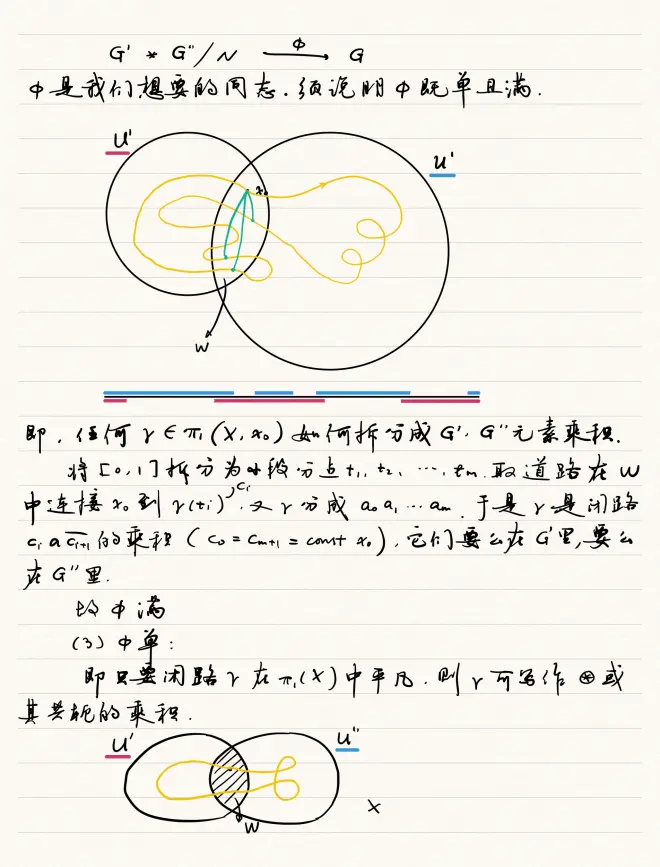 G' * G''/N —ϕ→ G
ϕ是我们想要的同态.须说明ϕ既单且满.
U'
U'
x₀
W
即,任何 γ∈π₁(X,x₀) 如何拆分成G'、G''元素乘积.
将[0,1]拆分为小段分点t₁,t₂,…,tₘ.取道路在W
中连接x₀到γ(tᵢ),cᵢ 又γ分成 a₀a₁…aₘ.于是γ是闭路
cᵢ a c̅ᵢ₊₁ 的乘积 (c₀=cₘ₊₁=const x₀),它们要么在G'里,要么
在G''里.
故ϕ满
(3) ϕ单:
即只要闭路γ在π₁(X)中平凡.则γ可写作⊛或
其共轭的乘积.
U'
U''
W
X